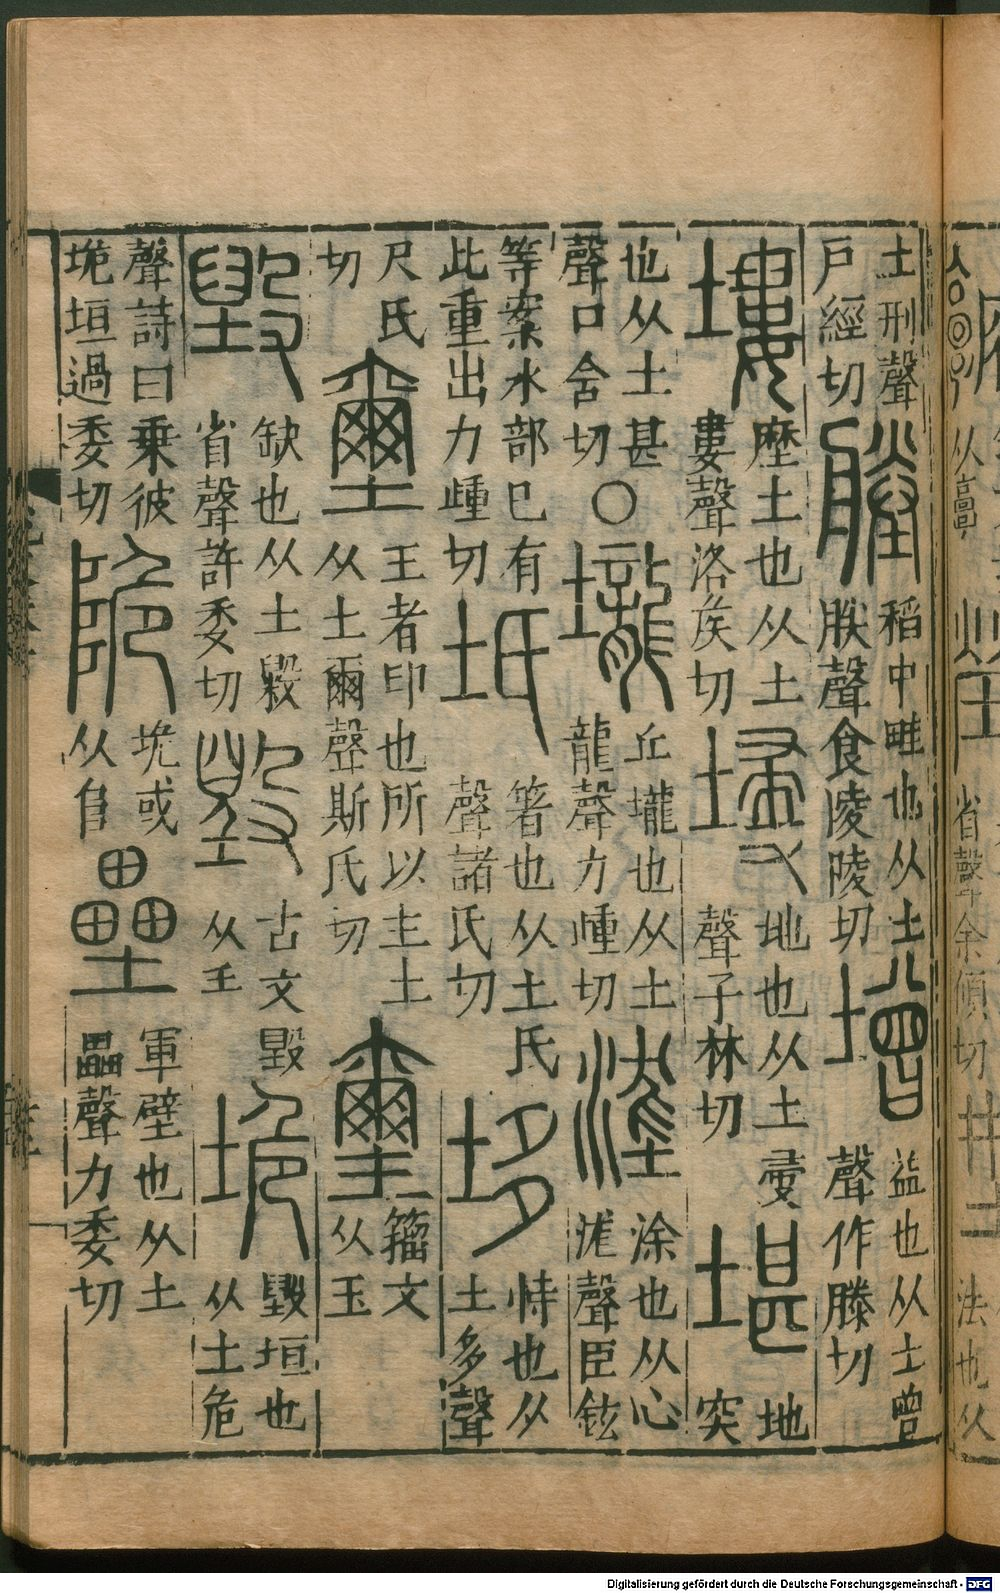 省聲余傾切
法也从
土刑聲
戶經切
塍
稻中畦也从土
朕聲食陵陵切
增
益也从土曾
聲作滕切
塿
塺土也从土
婁聲洛矦切
埐
地也从土
聲子林切
堪
地
突
也从土甚
聲口含切
○
壠
丘壠也从土
龍聲力歱切
涂也从心
浝聲臣鉉
等案水部已有
此重出力歱切
坁
箸也从土氏
聲諸氏切
垑
恃也从
土多聲
尺氏
切
壐
王者印也所以主土
从土爾聲斯氏切
璽
籀文
从玉
毀
缺也从土毇
省聲許委切
古文毀
从壬
垝
毀垣也
从土危
聲詩曰乘彼
垝垣過委切
陒
垝或
从𨸏
壘
軍壁也从土
畾聲力委切
Digitalisierung gefördert durch die Deutsche Forschungsgemeinschaft - DFG